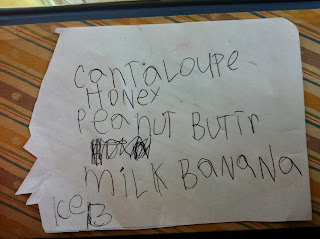 Cantaloupe
Honey
Peanut Buttr
milk Banana